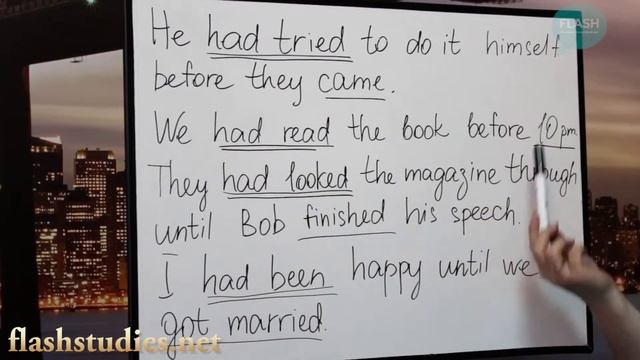 FLASH
He had tried to do it himself
before they came.
We had read the book before 10 pm.
They had looked the magazine through
until Bob finished his speech.
I had been happy until we
got married.
flashstudies.net